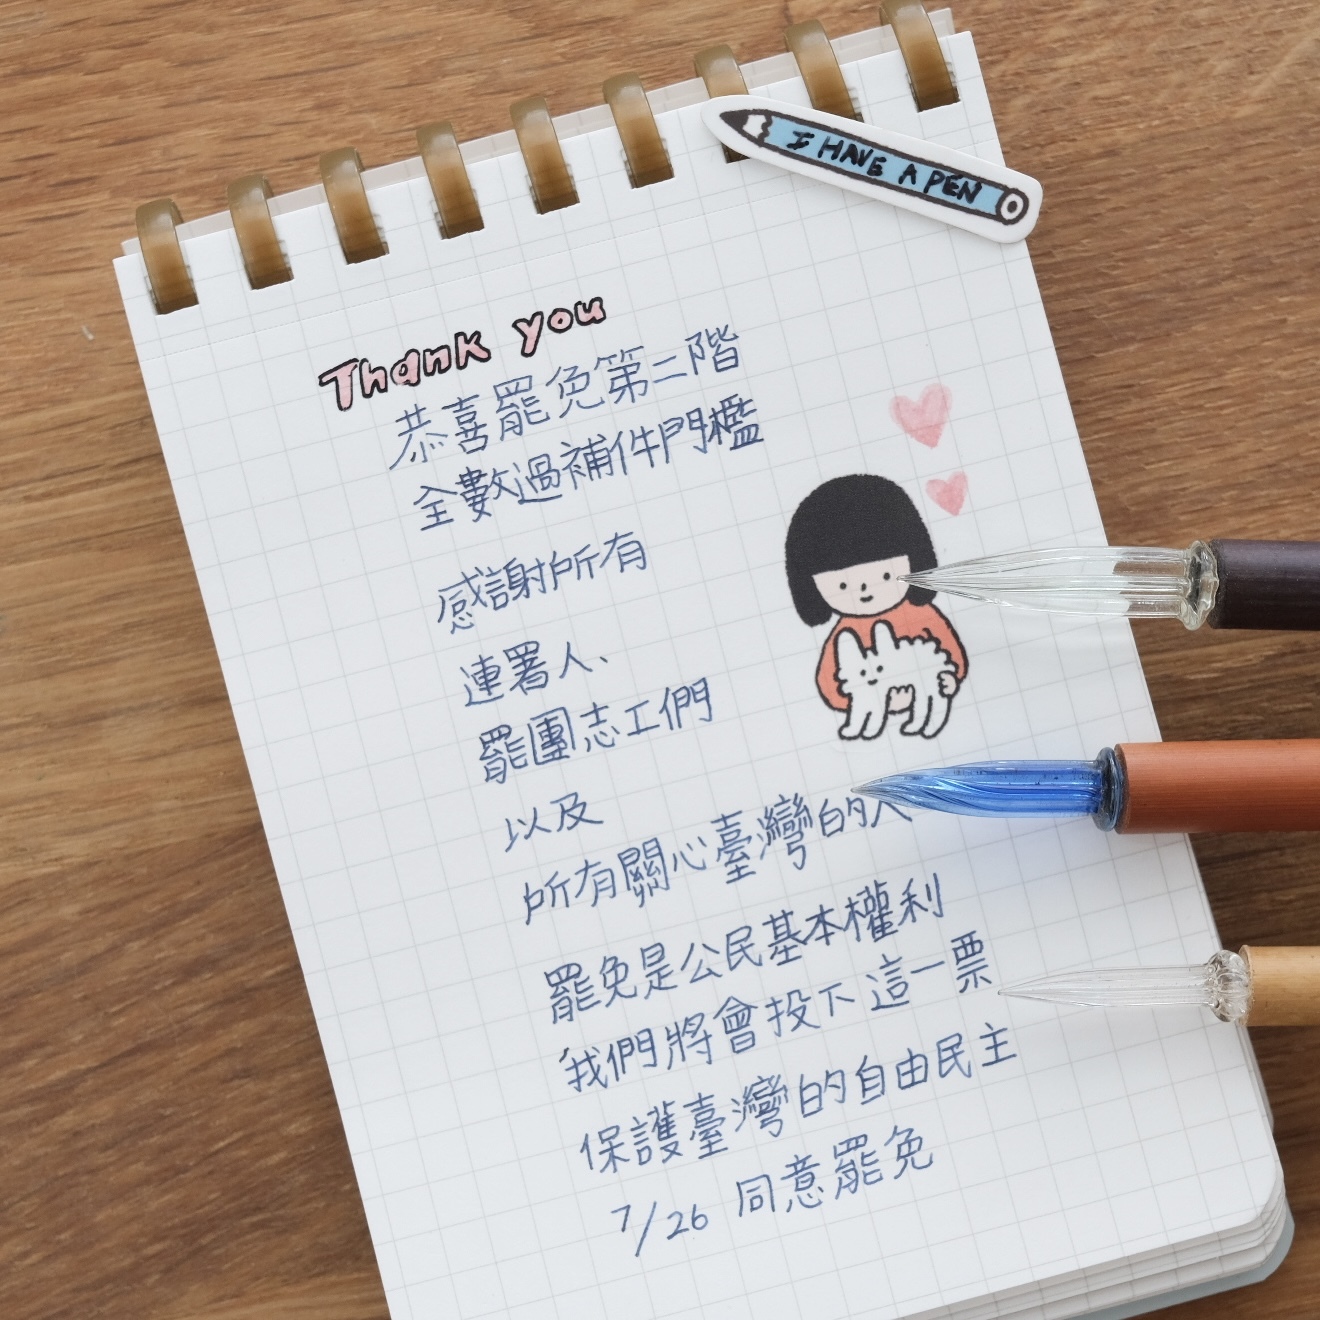 I HAVE A PEN
Thank you
恭喜罷免第二階
全數過補件門檻
感謝所有
連署人、
罷團志工們
以及
所有關心臺灣的人
罷免是公民基本權利
我們將會投下這一票
保護臺灣的自由民主
7/26 同意罷免